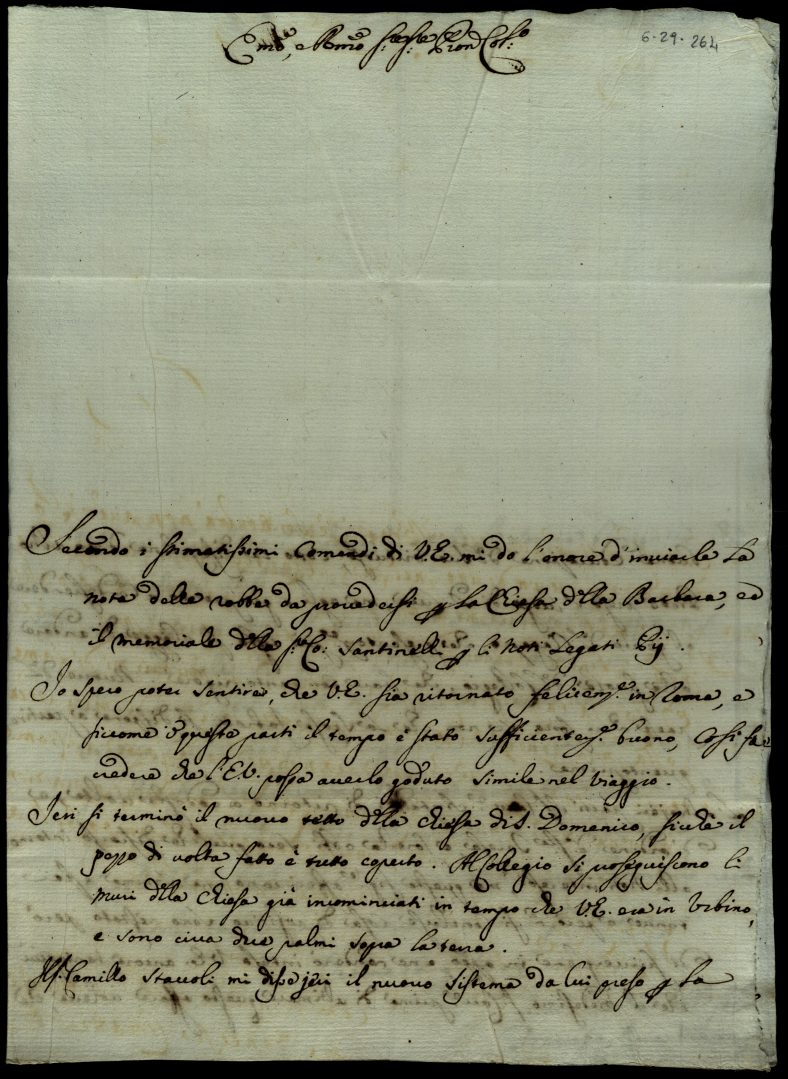 6-29-264
Em̃o, e Rm̃o Sig.re Sig.re Pron Col.mo
Secondo i stimatissimi Comandi di V.E. mi do l'onore d'inviarle la
nota delle robbe da provedersi p la Chiesa d̃lla Barbara, ed
il memoriale d̃lla Sig.ra Co: Santinelli p li noti Legati Pij.
Io spero poter sentire, che V.E. sia ritornato felicem.te in Roma, e
siccome ĩ queste parti il tempo è stato sufficientem.te buono, così fa
credere che l'E.V. possa averlo goduto simile nel viaggio.
Jeri si terminò il nuovo tetto d̃lla Chiesa di S. Domenico, sicchè il
pezzo di volta fatto è tutto coperto. Al Collegio si proseguiscono li
muri d̃lla Chiesa già incominciati in tempo che V.E. era in Urbino,
e sono circa due palmi sopra la terra.
Il Sig. Camillo Staccoli mi disse jeri il nuovo sistema da lui preso p la